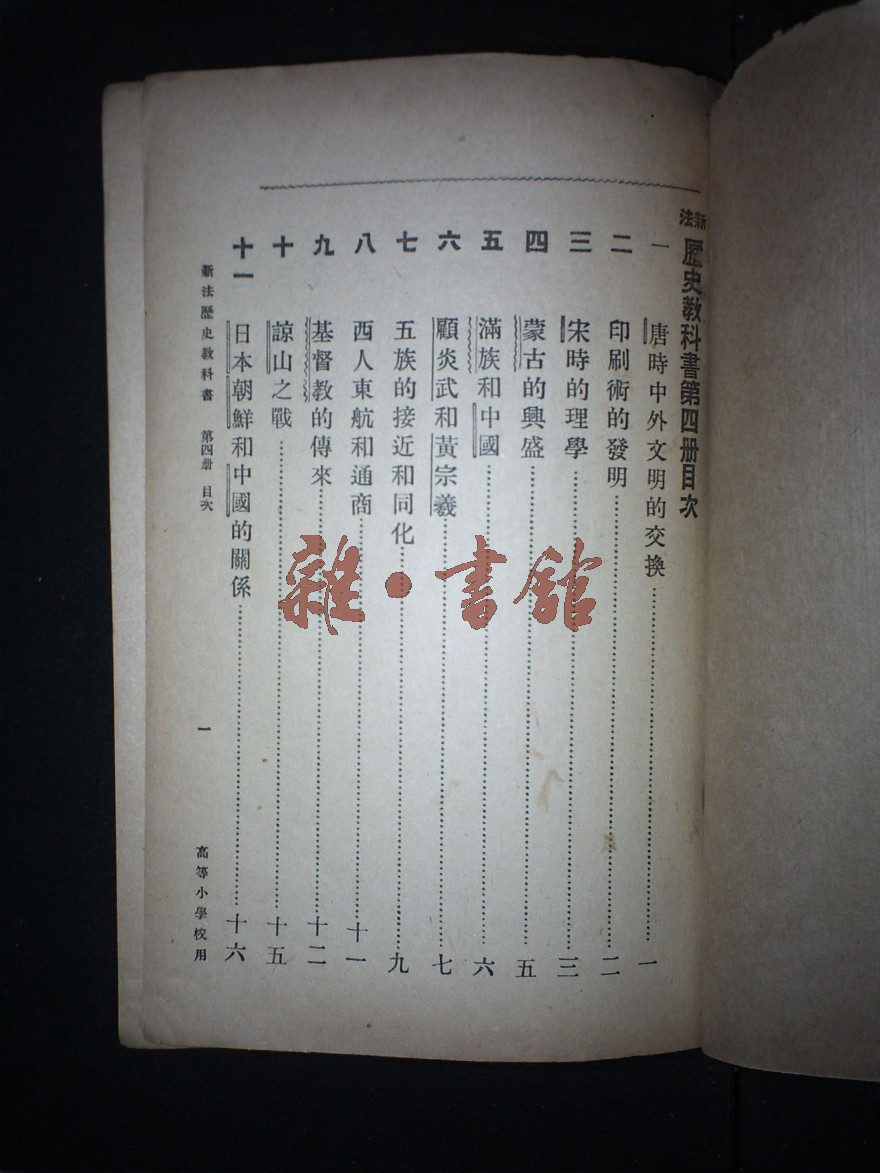 新法歷史教科書第四册目次
一 唐時中外文明的交換 一
二 印刷術的發明 二
三 宋時的理學 三
四 蒙古的興盛 五
五 滿族和中國 六
六 顧炎武和黃宗羲 七
七 五族的接近和同化 九
八 西人東航和通商 十一
九 基督教的傳來 十二
十 諒山之戰 十五
十一 日本朝鮮和中國的關係 十六
新法歷史教科書 第四册 目次 一 高等小學校用
雜·書館